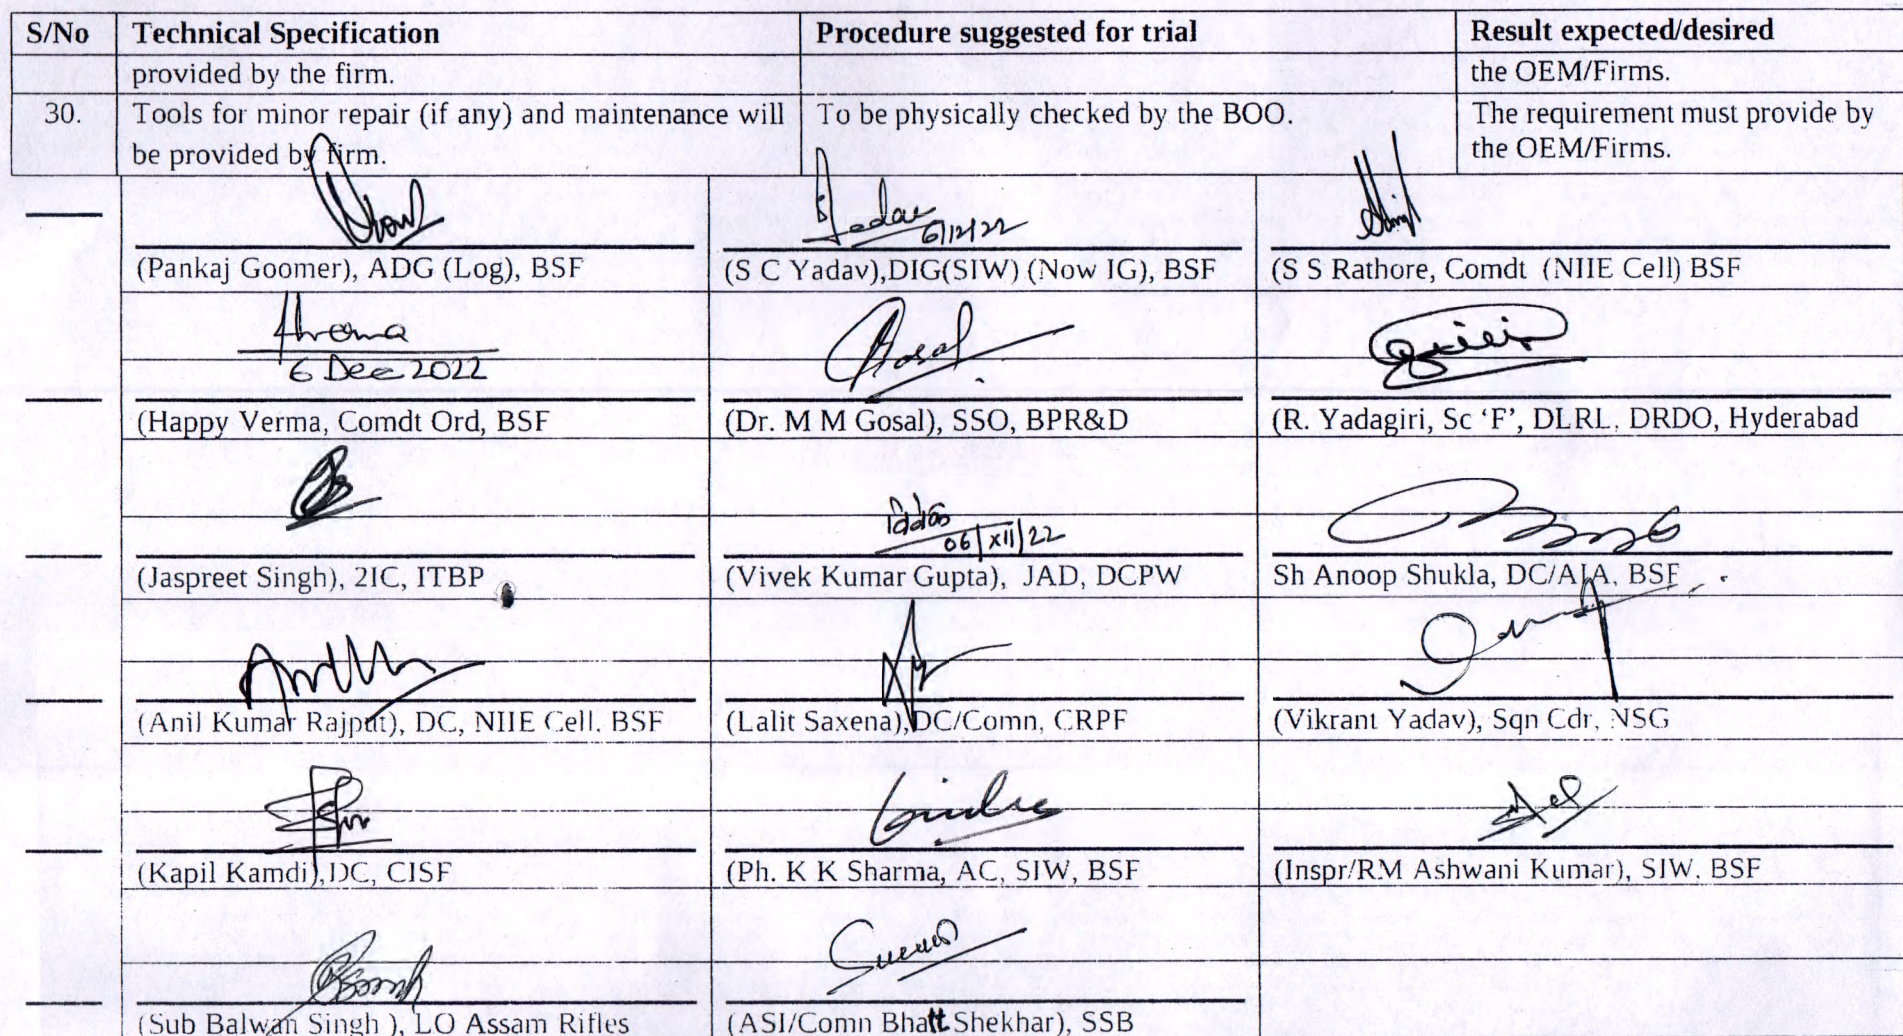 S/No Technical Specification Procedure suggested for trial Result expected/desired
provided by the firm. the OEM/Firms.
30. Tools for minor repair (if any) and maintenance will be provided by firm. To be physically checked by the BOO. The requirement must provide by the OEM/Firms.
6/12/22
(Pankaj Goomer), ADG (Log), BSF (S C Yadav),DIG(SIW) (Now IG), BSF (S S Rathore, Comdt (NIIE Cell) BSF
6 Dec 2022
(Happy Verma, Comdt Ord, BSF (Dr. M M Gosal), SSO, BPR&D (R. Yadagiri, Sc ‘F’, DLRL. DRDO, Hyderabad
06/XII/22
(Jaspreet Singh), 2IC, ITBP (Vivek Kumar Gupta), JAD, DCPW Sh Anoop Shukla, DC/AIA, BSF
(Anil Kumar Rajput), DC, NIIE Cell. BSF (Lalit Saxena),DC/Comn, CRPF (Vikrant Yadav), Sqn Cdr, NSG
(Kapil Kamdi),DC, CISF (Ph. K K Sharma, AC, SIW, BSF (Inspr/RM Ashwani Kumar), SIW. BSF
(Sub Balwan Singh ), LO Assam Rifles (ASI/Comn Bhatt Shekhar), SSB